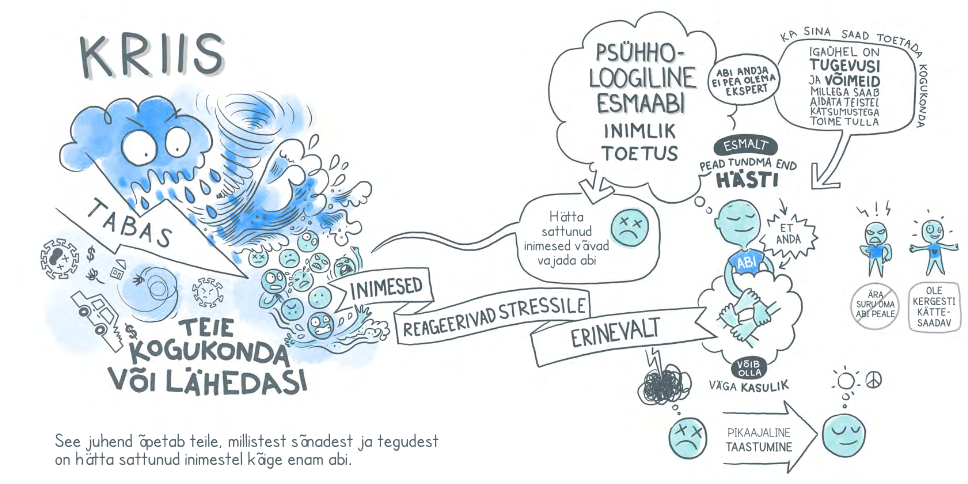 KRIIS
TABAS
TEIE
KOGUKONDA
VÕI LÄHEDASI
INIMESED
REAGEERIVAD STRESSILE
ERINEVALT
Hätta
sattunud
inimesed võvad
vajada abi
PSÜHHO-
LOOGILINE
ESMAABI
INIMLIK
TOETUS
ABI ANDJA
EI PEA OLEMA
EKSPERT
KA SINA SAAD TOETADA KOGUKONDA
IGAÜHEL ON
TUGEVUSI
JA VÕIMEID
MILLEGA SAAB
AIDATA TEISTEL
KATSUMUSTEGA
TOIME TULLA
ESMALT
PEAD TUNDMA END
HÄSTI
ET
ANDA
ABI
ÄRA
SURU OMA
ABI PEALE
OLE
KERGESTI
KÄTTE-
SAADAV
VÕIB
OLLA
VÄGA KASULIK
PIKAAJALINE
TAASTUMINE
See juhend õpetab teile, millistest sõnadest ja tegudest
on hätta sattunud inimestel kõige enam abi.